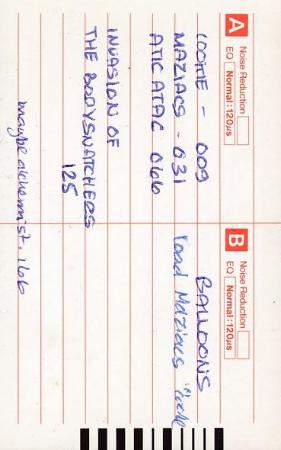 A
Noise Reduction
EQ Normal:120µs
COOKIE - 009
MAZIACS - 031
ATIC ATAC 066
INVASION OF
THE BODYSNATCHERS
125
maybe alchemist. 166
B
Noise Reduction
EQ Normal:120µs
BALLOONS
Load Maziacs